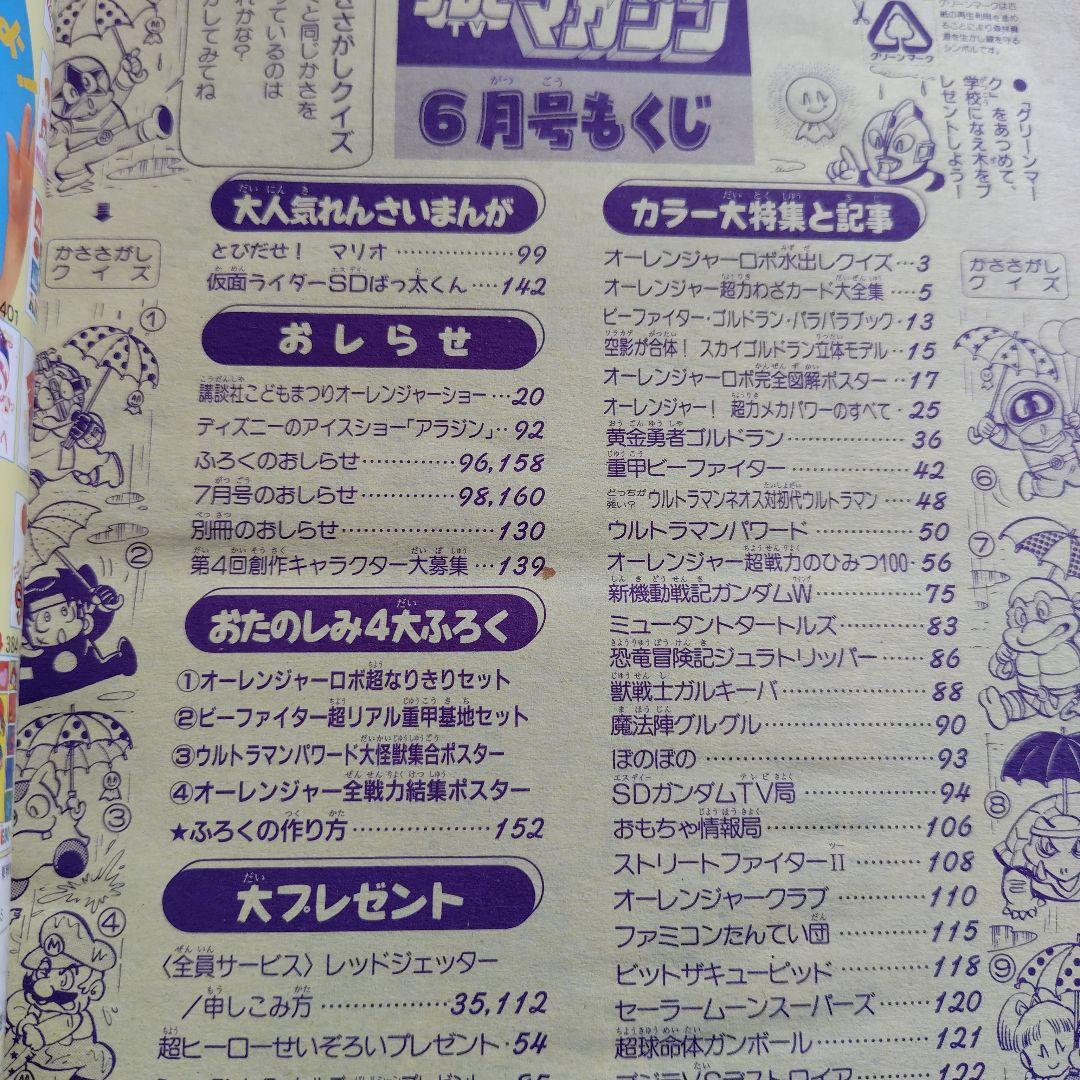 さがしクイズ
と同じかさを
っているのは
れかな?
がしてみてね
マガジン
6月号もくじ
グリーンマーク
シンボルです。
●「グリーンマー
ク」をあつめて、
学校になえ木をプ
レゼントしよう!
大人気れんさいまんが
とびだせ! マリオ……………99
仮面ライダーSDばっ太くん……142
おしらせ
講談社こどもまつりオーレンジャーショー…20
ディズニーのアイスショー「アラジン」‥92
ふろくのおしらせ…………96,158
7月号のおしらせ…………98,160
別冊のおしらせ……………130
第4回創作キャラクター大募集…139
おたのしみ4大ふろく
①オーレンジャーロボ超なりきりセット
②ビーファイター超リアル重甲基地セット
③ウルトラマンパワード大怪獣集合ポスター
④オーレンジャー全戦力結集ポスター
★ふろくの作り方……………152
大プレゼント
〈全員サービス〉レッドジェッター
/申しこみ方…………35,112
超ヒーローせいぞろいプレゼント・54
カラー大特集と記事
オーレンジャーロボ水出しクイズ…3
オーレンジャー超力わざカード大全集……5
ビーファイター・ゴルドラン・パラパラブック・13
空影が合体! スカイゴルドラン立体モデル‥15
オーレンジャーロボ完全図解ポスター…17
オーレンジャー! 超力メカパワーのすべて・25
黄金勇者ゴルドラン……………36
重甲ビーファイター……………42
どっちが強い? ウルトラマンネオス対初代ウルトラマン……48
ウルトラマンパワード……………50
オーレンジャー超戦力のひみつ100・56
新機動戦記ガンダムW…………75
ミュータントタートルズ…………83
恐竜冒険記ジュラトリッパー……86
獣戦士ガルキーバ………………88
魔法陣グルグル…………………90
ぼのぼの…………………………93
SDガンダムTV局………………94
おもちゃ情報局…………………106
ストリートファイターⅡ…………108
オーレンジャークラブ……………110
ファミコンたんてい団……………115
ビットザキューピッド……………118
セーラームーンスーパーズ………120
超球命体ガンボール………………121
122
かささがし
クイズ
①
②
③
④
かささがし
クイズ
⑥
⑦
⑧
⑨
401
384